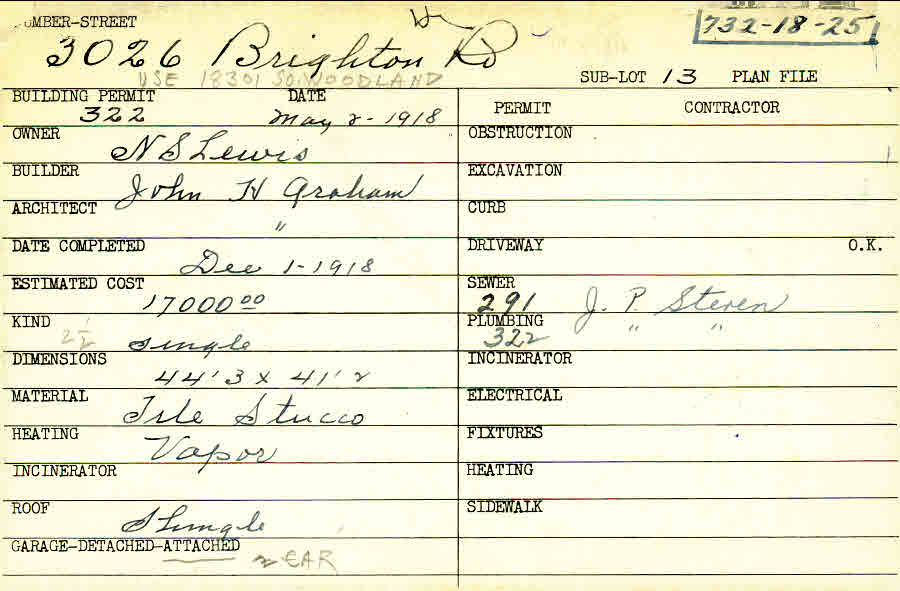 NUMBER-STREET
732-18-25
3026 Brighton Rd
USE 18301 SO. WOODLAND
SUB-LOT 13 PLAN FILE
BUILDING PERMIT DATE
322 May 2-1918
PERMIT CONTRACTOR
OWNER
N S Lewis
OBSTRUCTION
BUILDER
John H Graham
EXCAVATION
ARCHITECT
"
CURB
DATE COMPLETED
Dec 1-1918
DRIVEWAY O.K.
ESTIMATED COST
17000 00
SEWER
291 J. P. Steven
KIND
2 1/2 Single
PLUMBING
322 " "
DIMENSIONS
44' 3 x 41' 2
INCINERATOR
MATERIAL
Tile Stucco
ELECTRICAL
HEATING
Vapor
FIXTURES
INCINERATOR
HEATING
ROOF
Shingle
SIDEWALK
GARAGE-DETACHED-ATTACHED
2 CAR